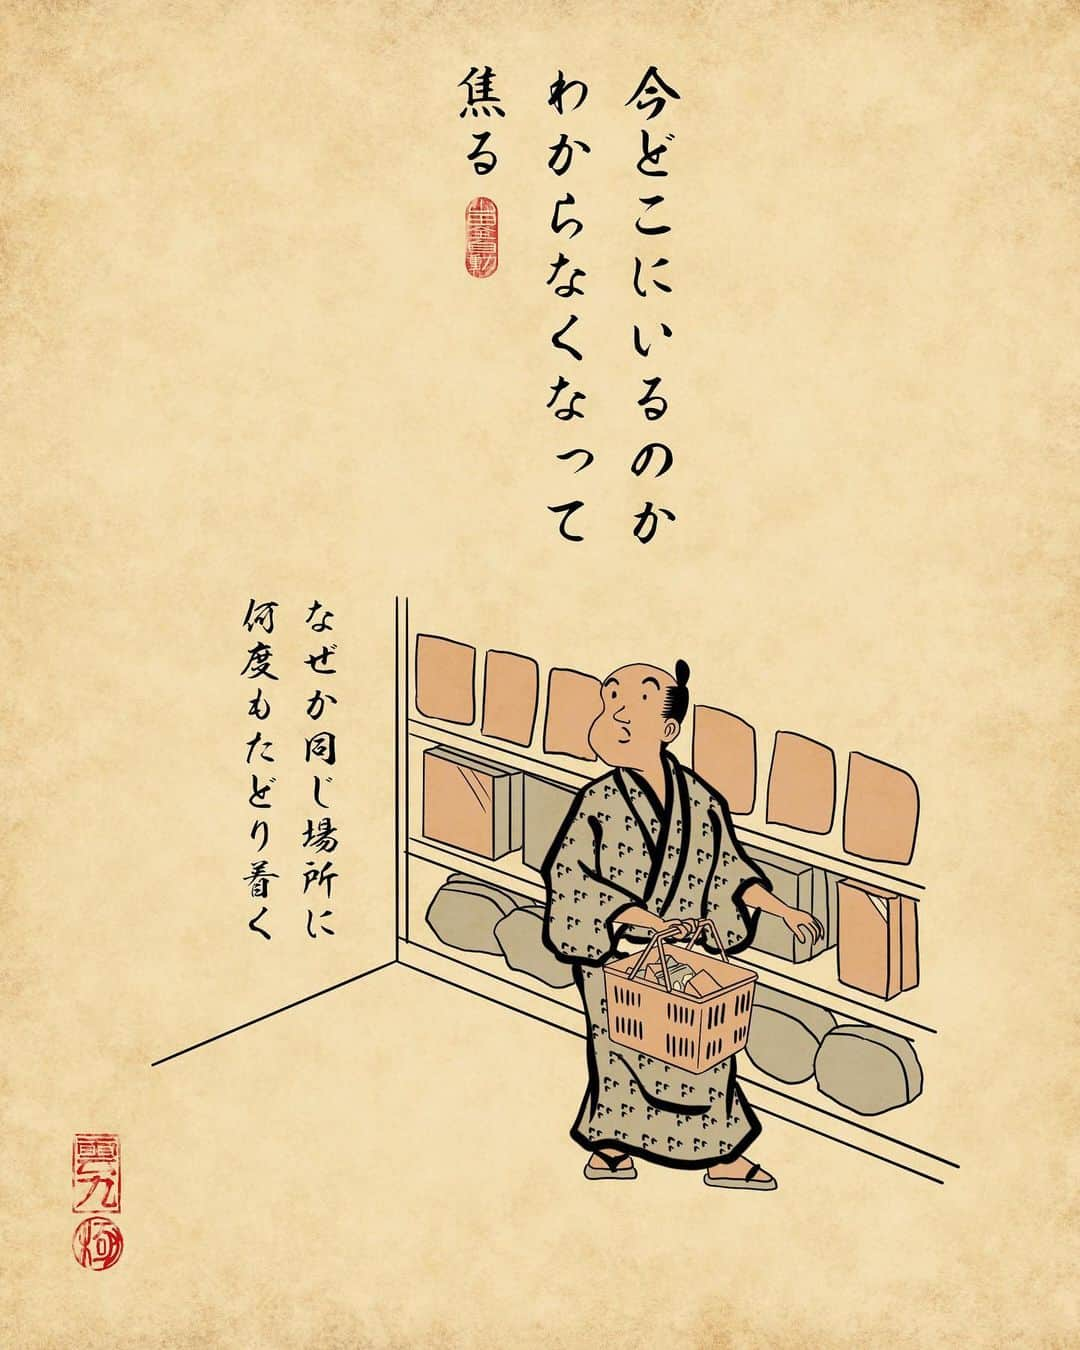 今どこにいるのか
わからなくなって
焦る
なぜか同じ場所に
何度もたどり着く